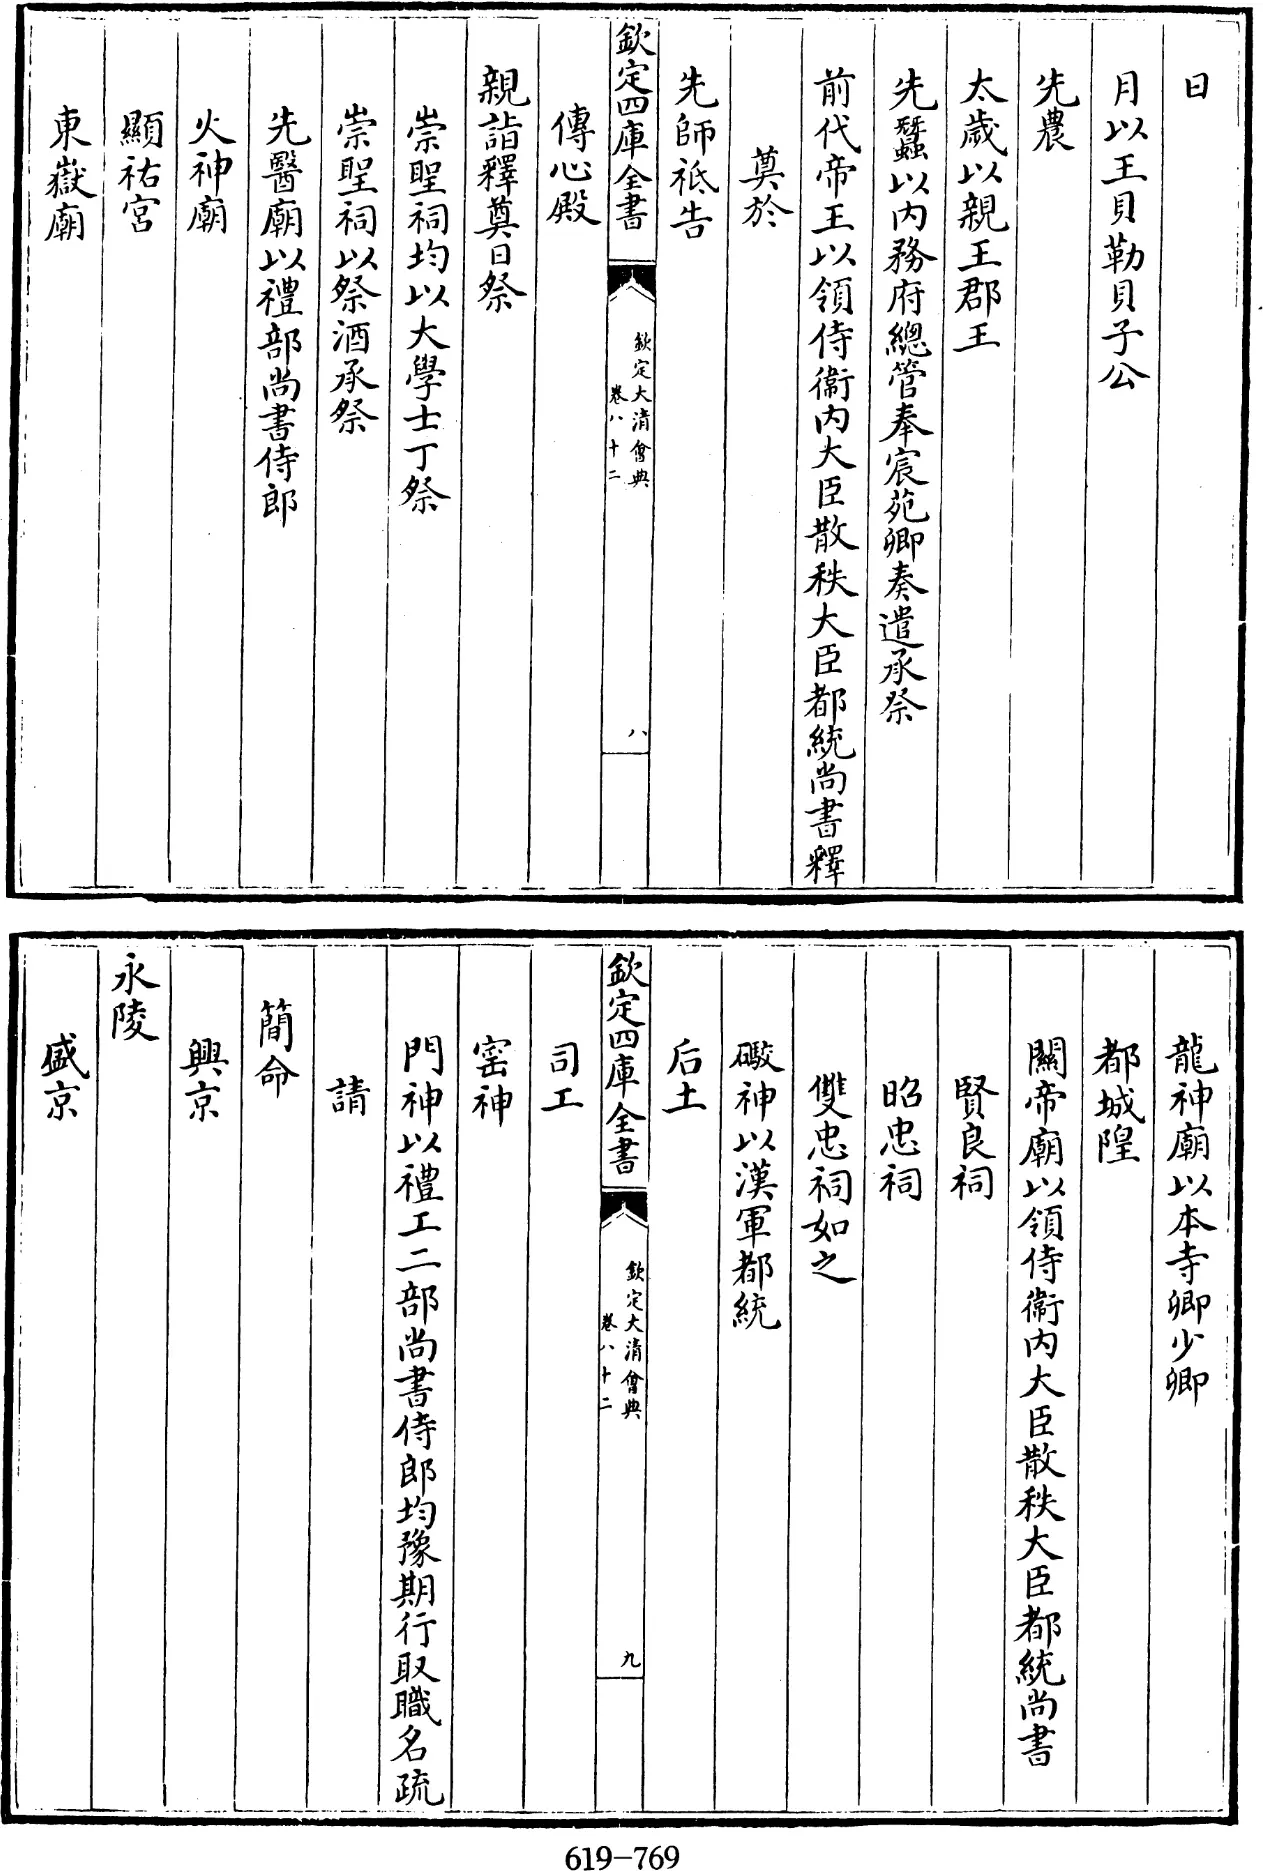 日
月以王貝勒貝子公
先農
太歲以親王郡王
先蠶以內務府總管奉宸苑卿奏遣承祭
前代帝王以領侍衛內大臣散秩大臣都統尚書釋
奠於
先師祗告
欽定四庫全書
欽定大清會典
卷八十二
八
傳心殿
親詣釋奠日祭
崇聖祠均以大學士丁祭
崇聖祠以祭酒承祭
先醫廟以禮部尚書侍郎
火神廟
顯祐宮
東嶽廟
龍神廟以本寺卿少卿
都城隍
關帝廟以領侍衛內大臣散秩大臣都統尚書
賢良祠
昭忠祠
雙忠祠如之
礮神以漢軍都統
后土
欽定四庫全書
欽定大清會典
卷八十二
九
司工
窑神
門神以禮工二部尚書侍郎均豫期行取職名疏
請
簡命
興京
永陵
盛京
619-769